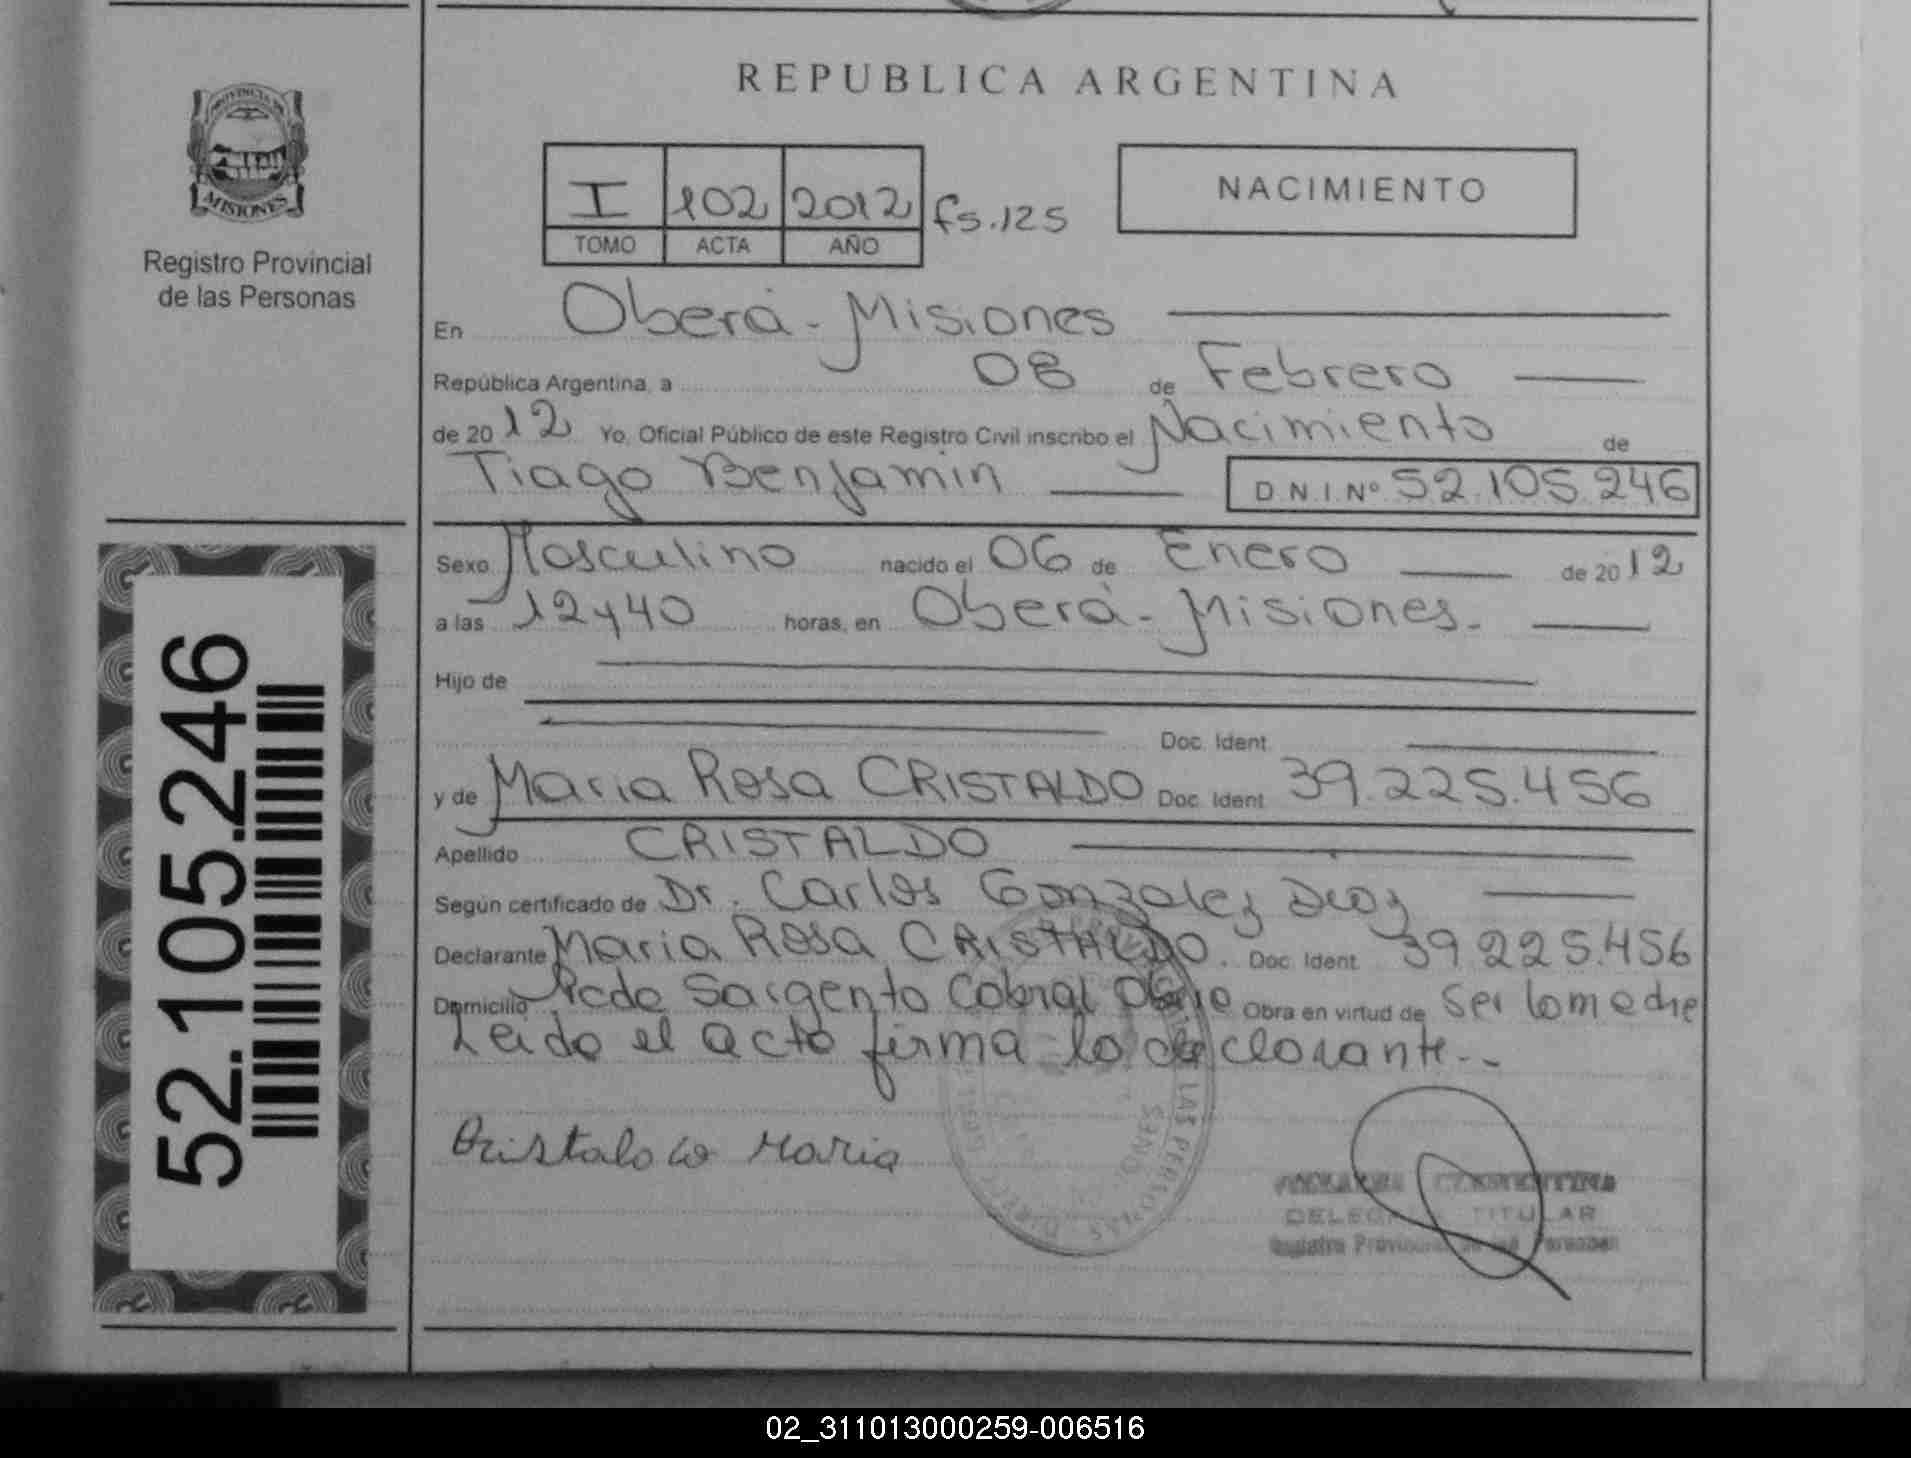 REPUBLICA ARGENTINA
PROVINCIA DE
MISIONES
Registro Provincial
de las Personas
I 102 2012 fs.125
TOMO ACTA AÑO
NACIMIENTO
En Oberá - Misiones
República Argentina, a 08 de Febrero
de 20 12 Yo, Oficial Público de este Registro Civil inscribo el Nacimiento de
Tiago Benjamin D.N.I.Nº 52.105.246
Sexo Masculino nacido el 06 de Enero de 20 12
a las 12y40 horas, en Oberá - Misiones.
Hijo de
Doc. Ident.
y de Maria Rosa CRISTALDO Doc. Ident. 39.225.456
Apellido CRISTALDO
Según certificado de Dr. Carlos Gonzalez
Declarante Maria Rosa CRISTALDO. Doc. Ident. 39.225.456
Domicilio Sargento Cabral Obra en virtud de ser la madre
Leido el acta firma la declarante..
Cristaldo Maria
52.105.246
DELEGADA TITULAR
Registro Provincial de las Personas
02_311013000259-006516